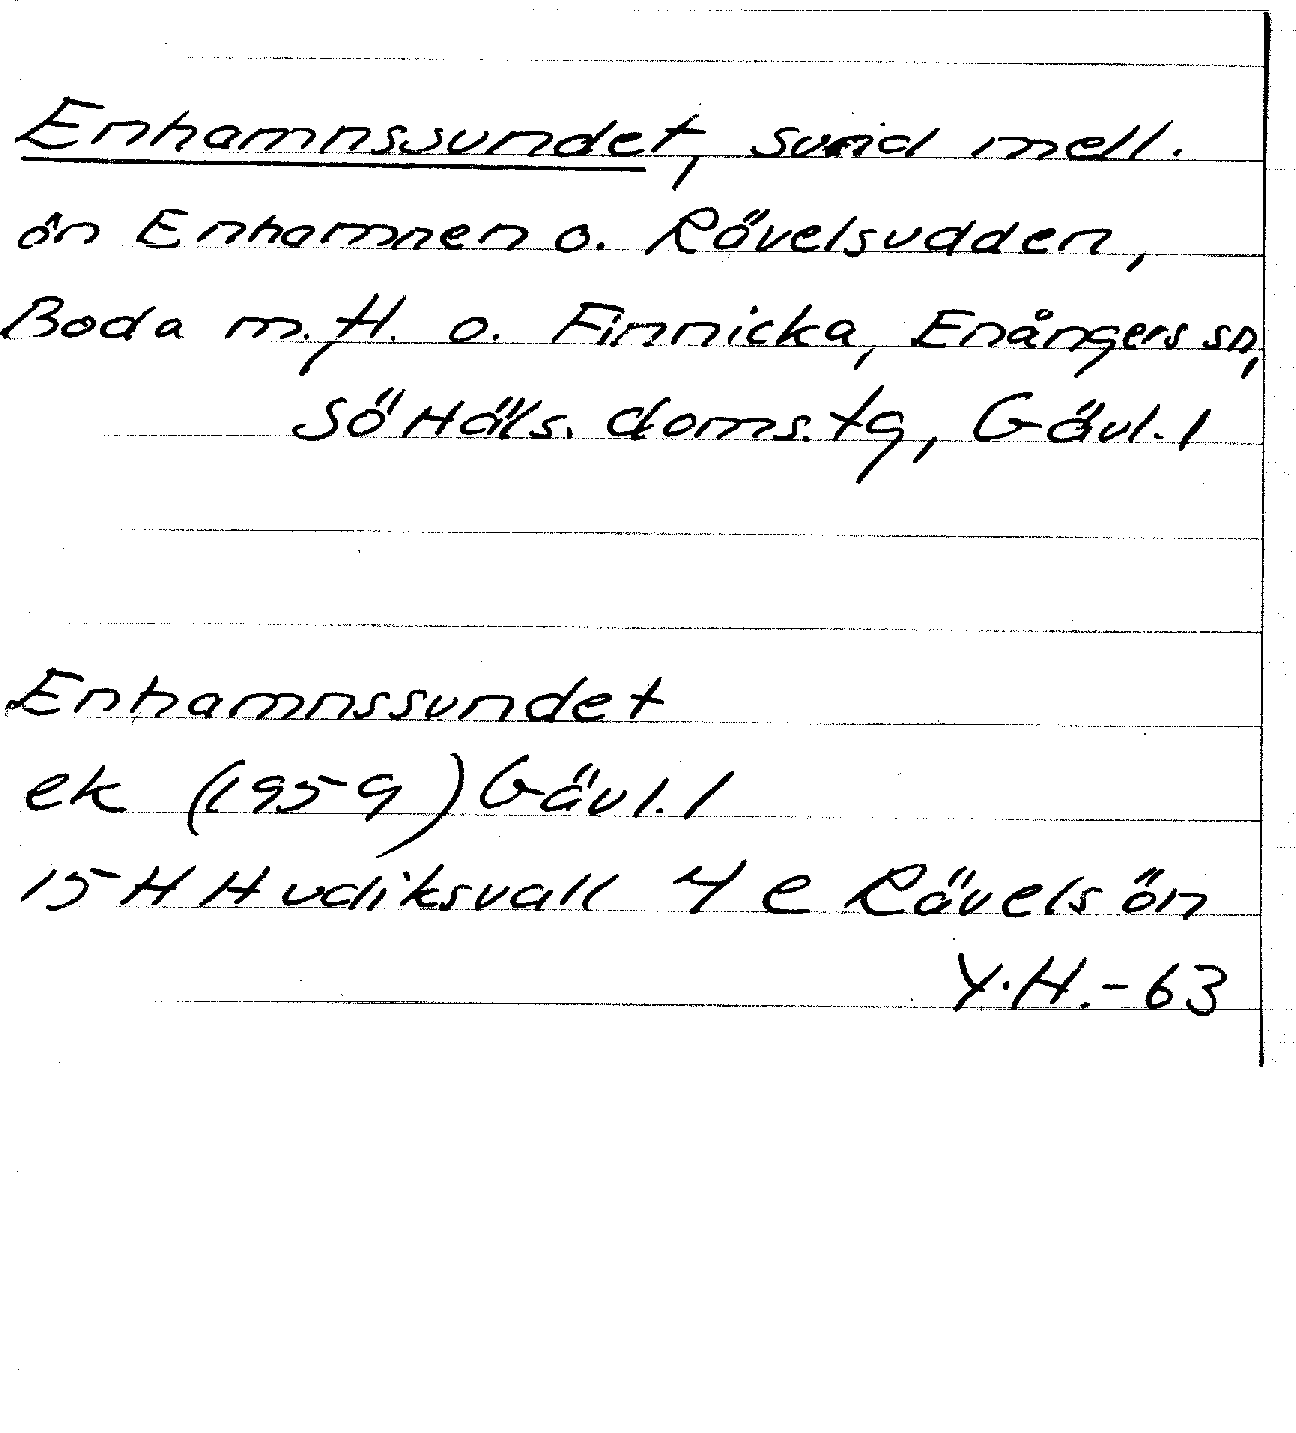 Enhamnssundet, sund mell.
ön Enhamnen o. Rövelsudden,
Boda m. fl. o. Finnicka, Enångers sn,
Sö Häls. doms. tg, Gävl. l
Enhamnssundet
ek (1959) Gävl. l
15 H Hudiksvall 4 e Rävelsön
Y. H. - 63